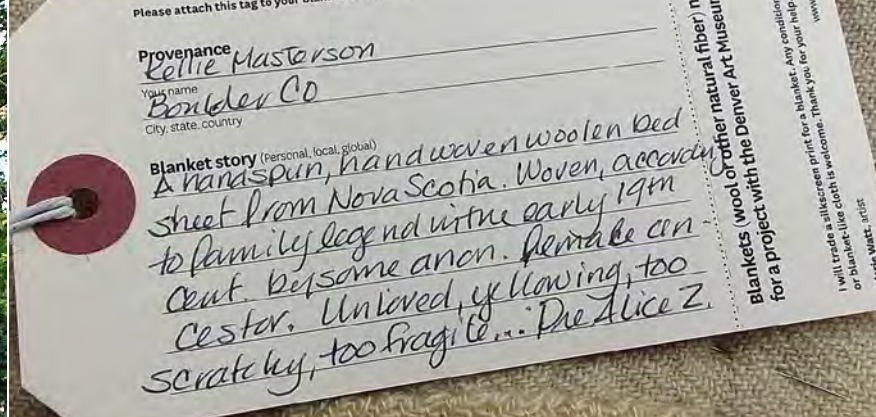 Please attach this tag to your blan
Provenance
Kellie Masterson
Your name
Boulder CO
City, state, country
Blanket story (Personal, local, global)
A handspun, handwoven woolen bed
sheet from Nova Scotia. Woven, according
to family legend in the early 19th
cent. by some anon. female an-
cestor. Unloved, yellowing, too
scratchy, too fragile... Pre Alice Z.
Blankets (wool or other natural fiber) n
for a project with the Denver Art Museum
I will trade a silkscreen print for a blanket. Any condition
or blanket-like cloth is welcome. Thank you for your help.
Watt, artist
www